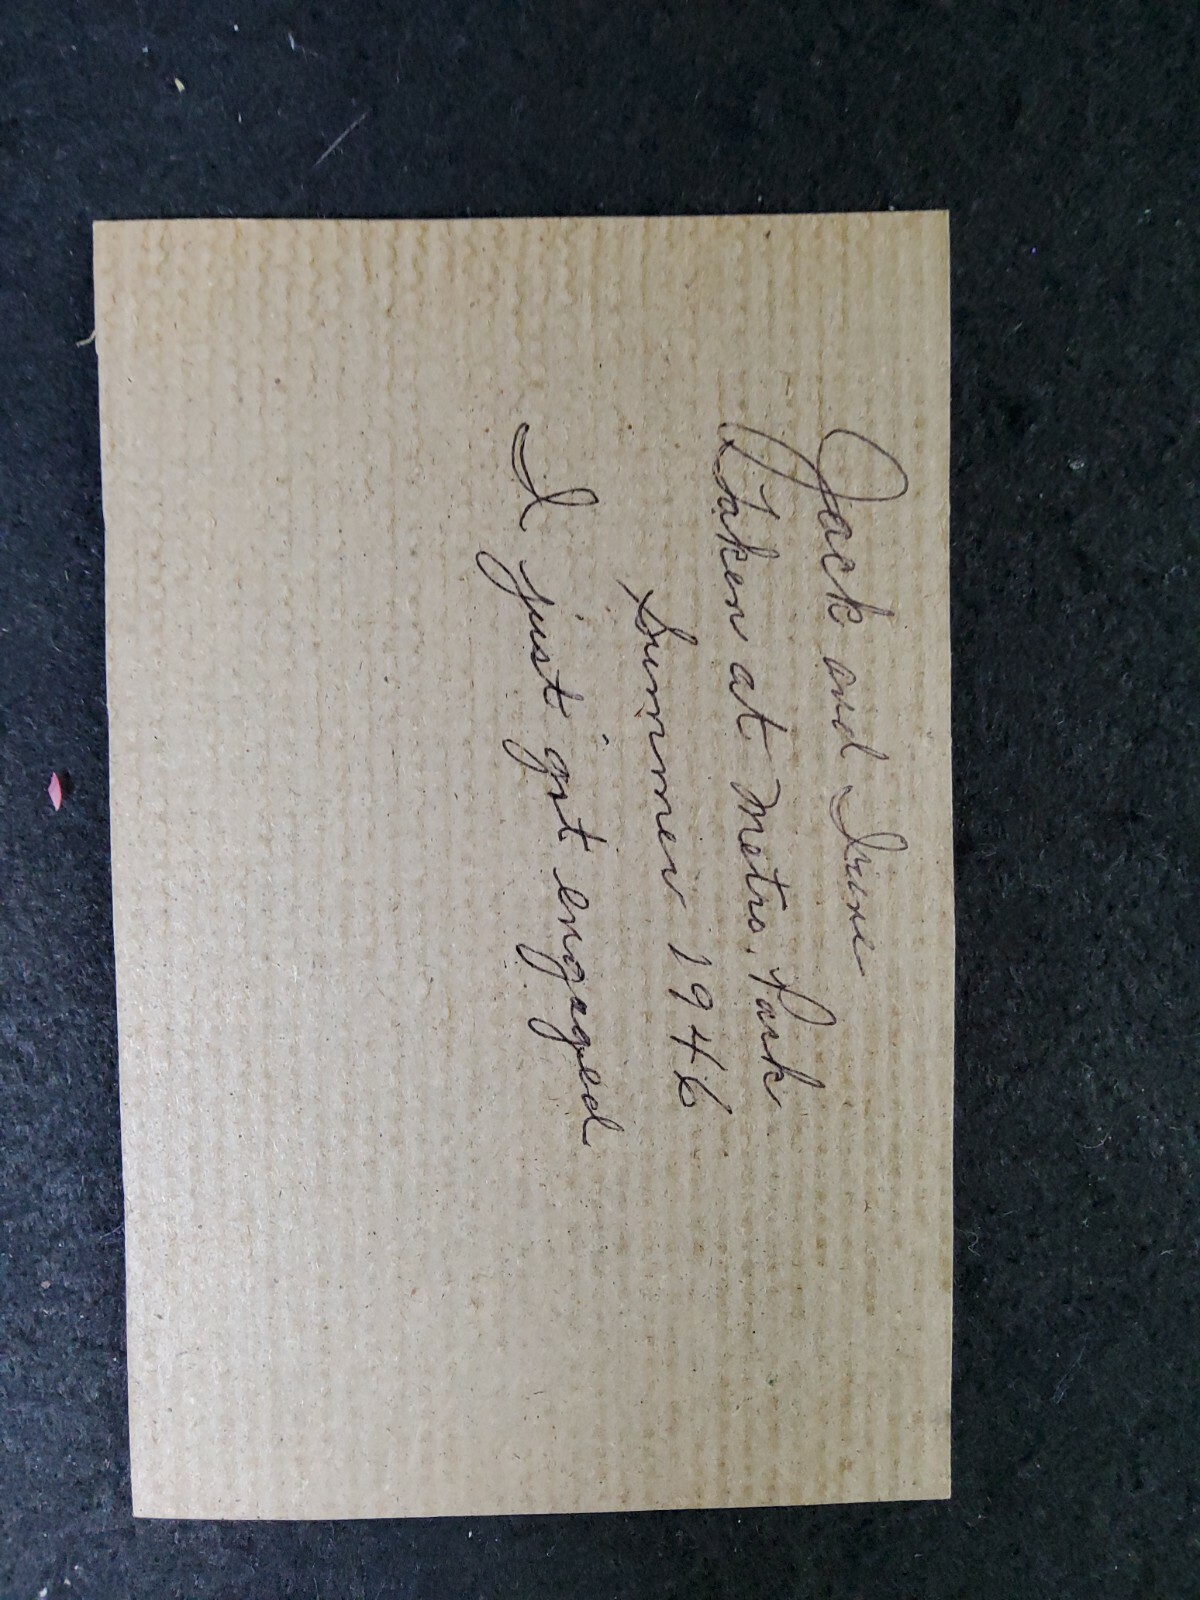 Jack and Irene
Taken at Metro. Park
Summer 1946
I just got engaged